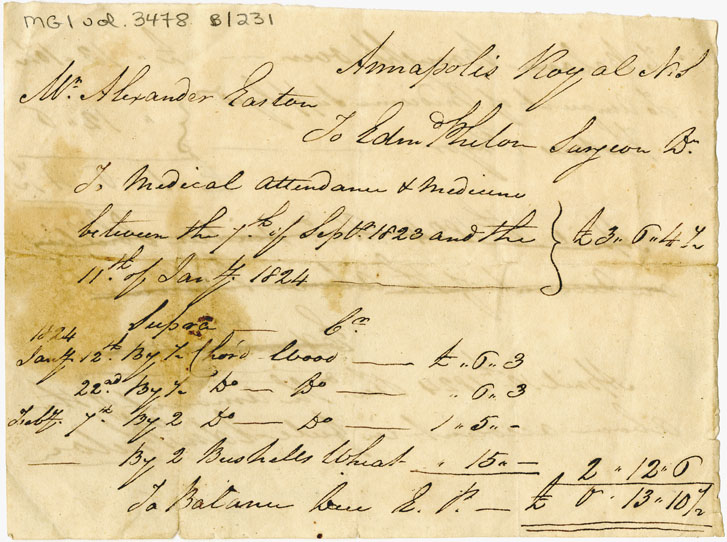 MG1 vol. 3478 B/231
Annapolis Royal N.S
Mr. Alexander Easton
To Edmd. Phelon Surgeon Dr.
To Medical attendance & Medicine
between the 7th of Septr. 1823 and the } £ 3 „ 6 „ 4 ½
11th. of Jany. 1824
Supra — Cr
1824
Jany. 12th. By ½ Chord Wood — £ „ 6 „ 3
22nd By ½ Do — Do — „ 6 „ 3
Feby. 7th By 2 Do — Do — 1 „ 5 „ -
— By 2 Bushells Wheat — „ 15 „ — 2 „ 12 „ 6
To Balance Due E. P. — £ 0 „ 13 „ 10 ½